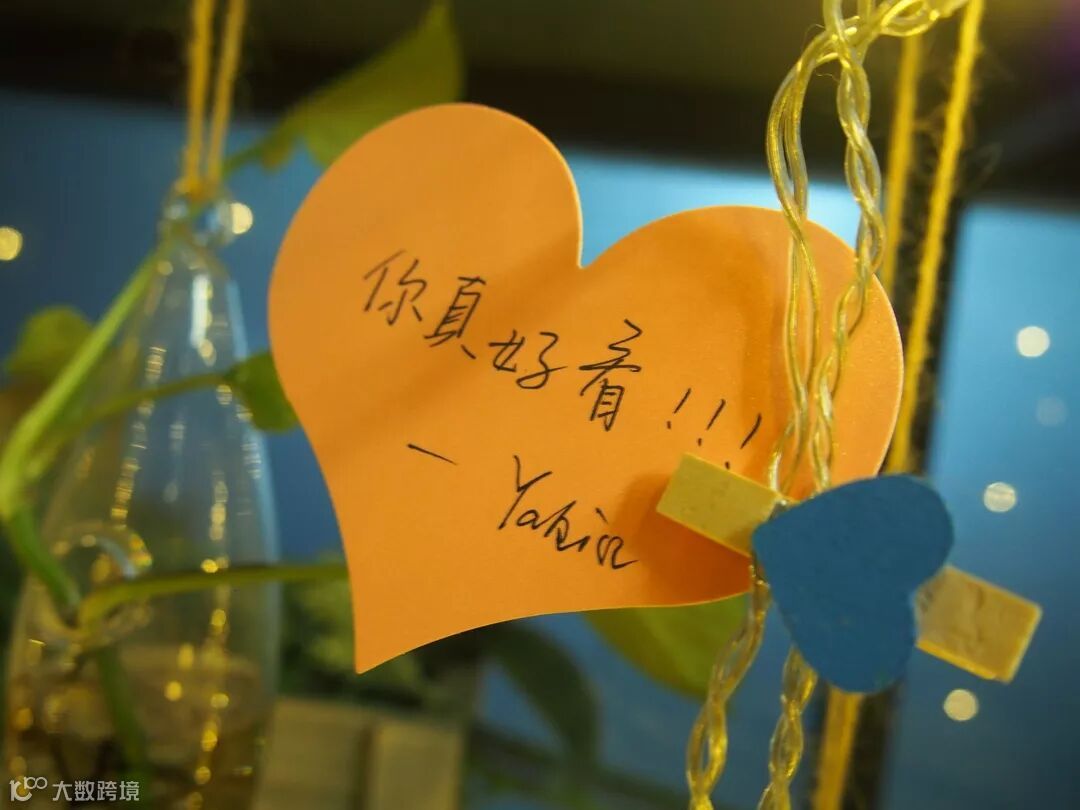 你真好看!!!
— Yabin
大数跨境